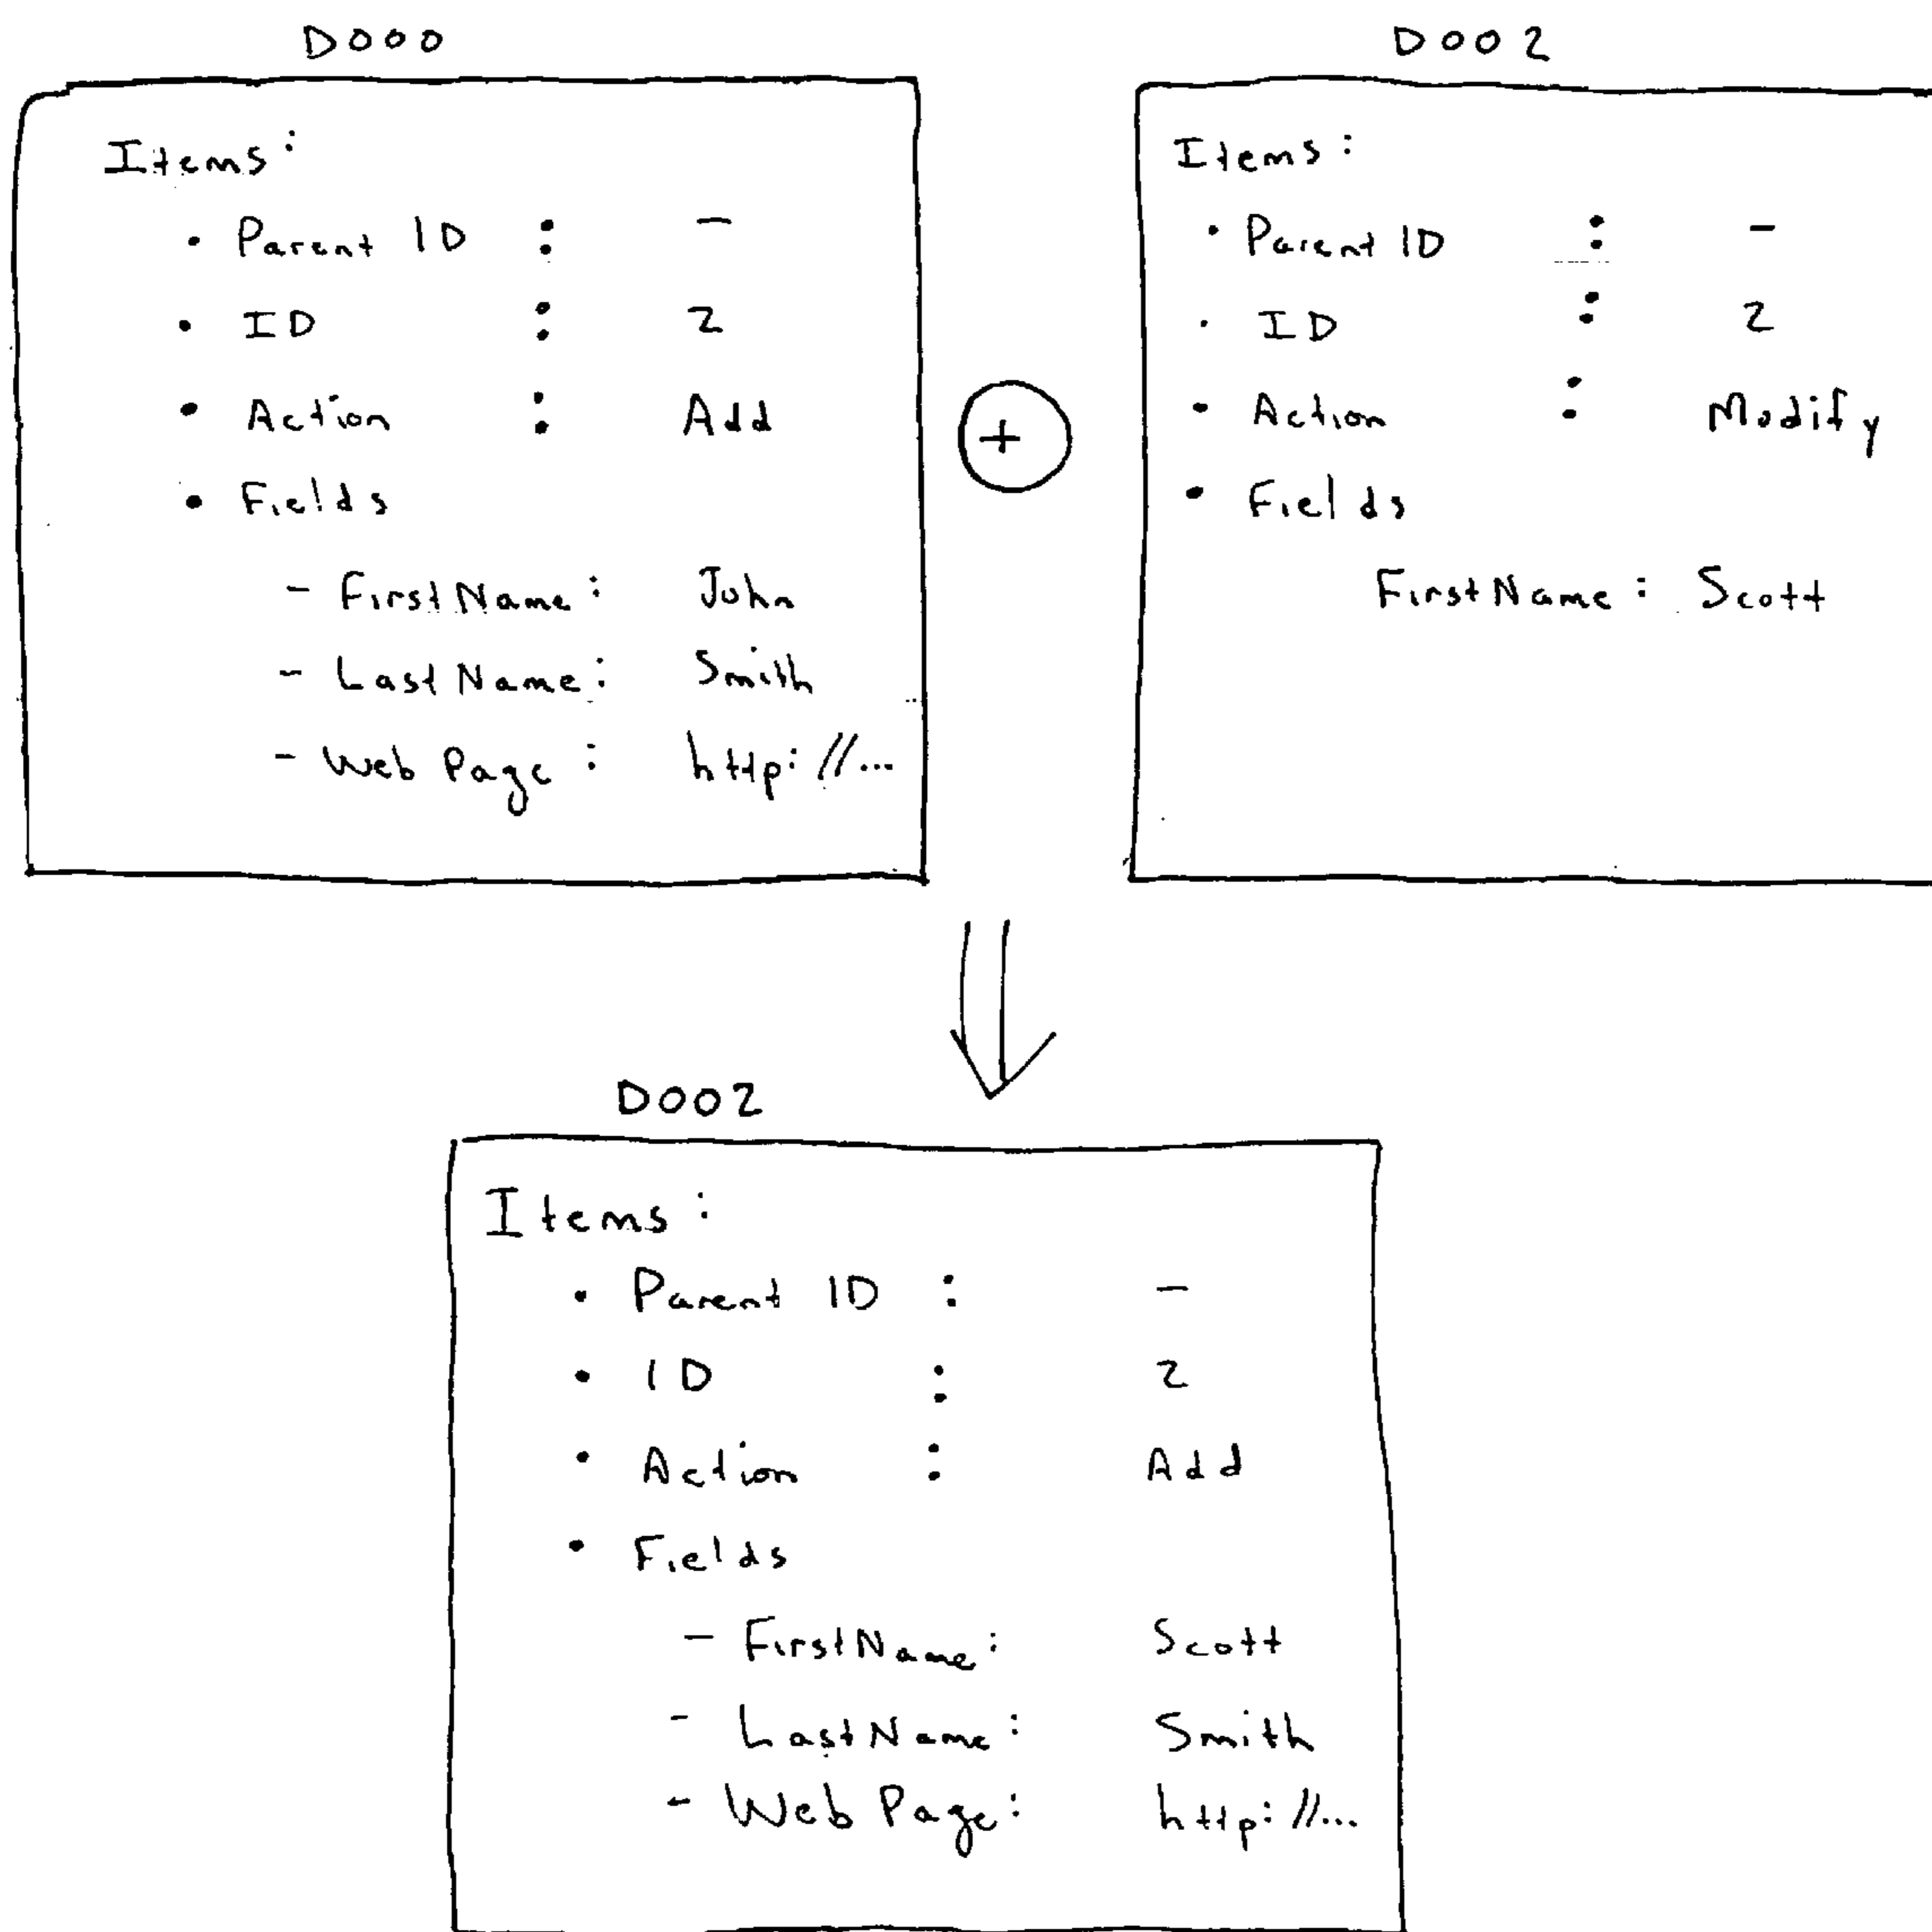 D000
Items:
• Parent ID : -
• ID : 2
• Action : Add
• Fields
- FirstName: John
- LastName: Smith
- Web Page: http://...
+
D002
Items:
• Parent ID : -
• ID : 2
• Action : Modify
• Fields
FirstName: Scott
D002
Items:
• Parent ID : -
• ID : 2
• Action : Add
• Fields
- FirstName: Scott
- LastName: Smith
- Web Page: http://...